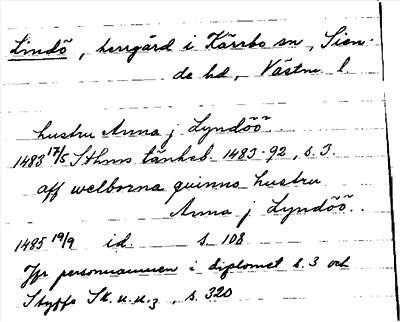 Lindö, herrgård i Kärrbo sn, Sien-
de hd, Västm. l.
hustru Anna j Lyndöö
1483 17/5 Sthms tänkeb. 1483-92, s. 3.
aff welborna quinna hustru
Anna j Lyndöö..
1485 19/9 id. s. 108
Jfr personnamnen i diplomet s. 3 och
Styffe Sk. u. u.3, s. 320